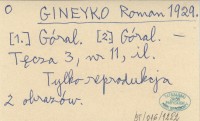 O GINEYKO Roman 1929.
[1.] Góral. [2.] Góral. —
Tęcza 3, nr 11, il.
Tylko reprodukcja
2 obrazów.